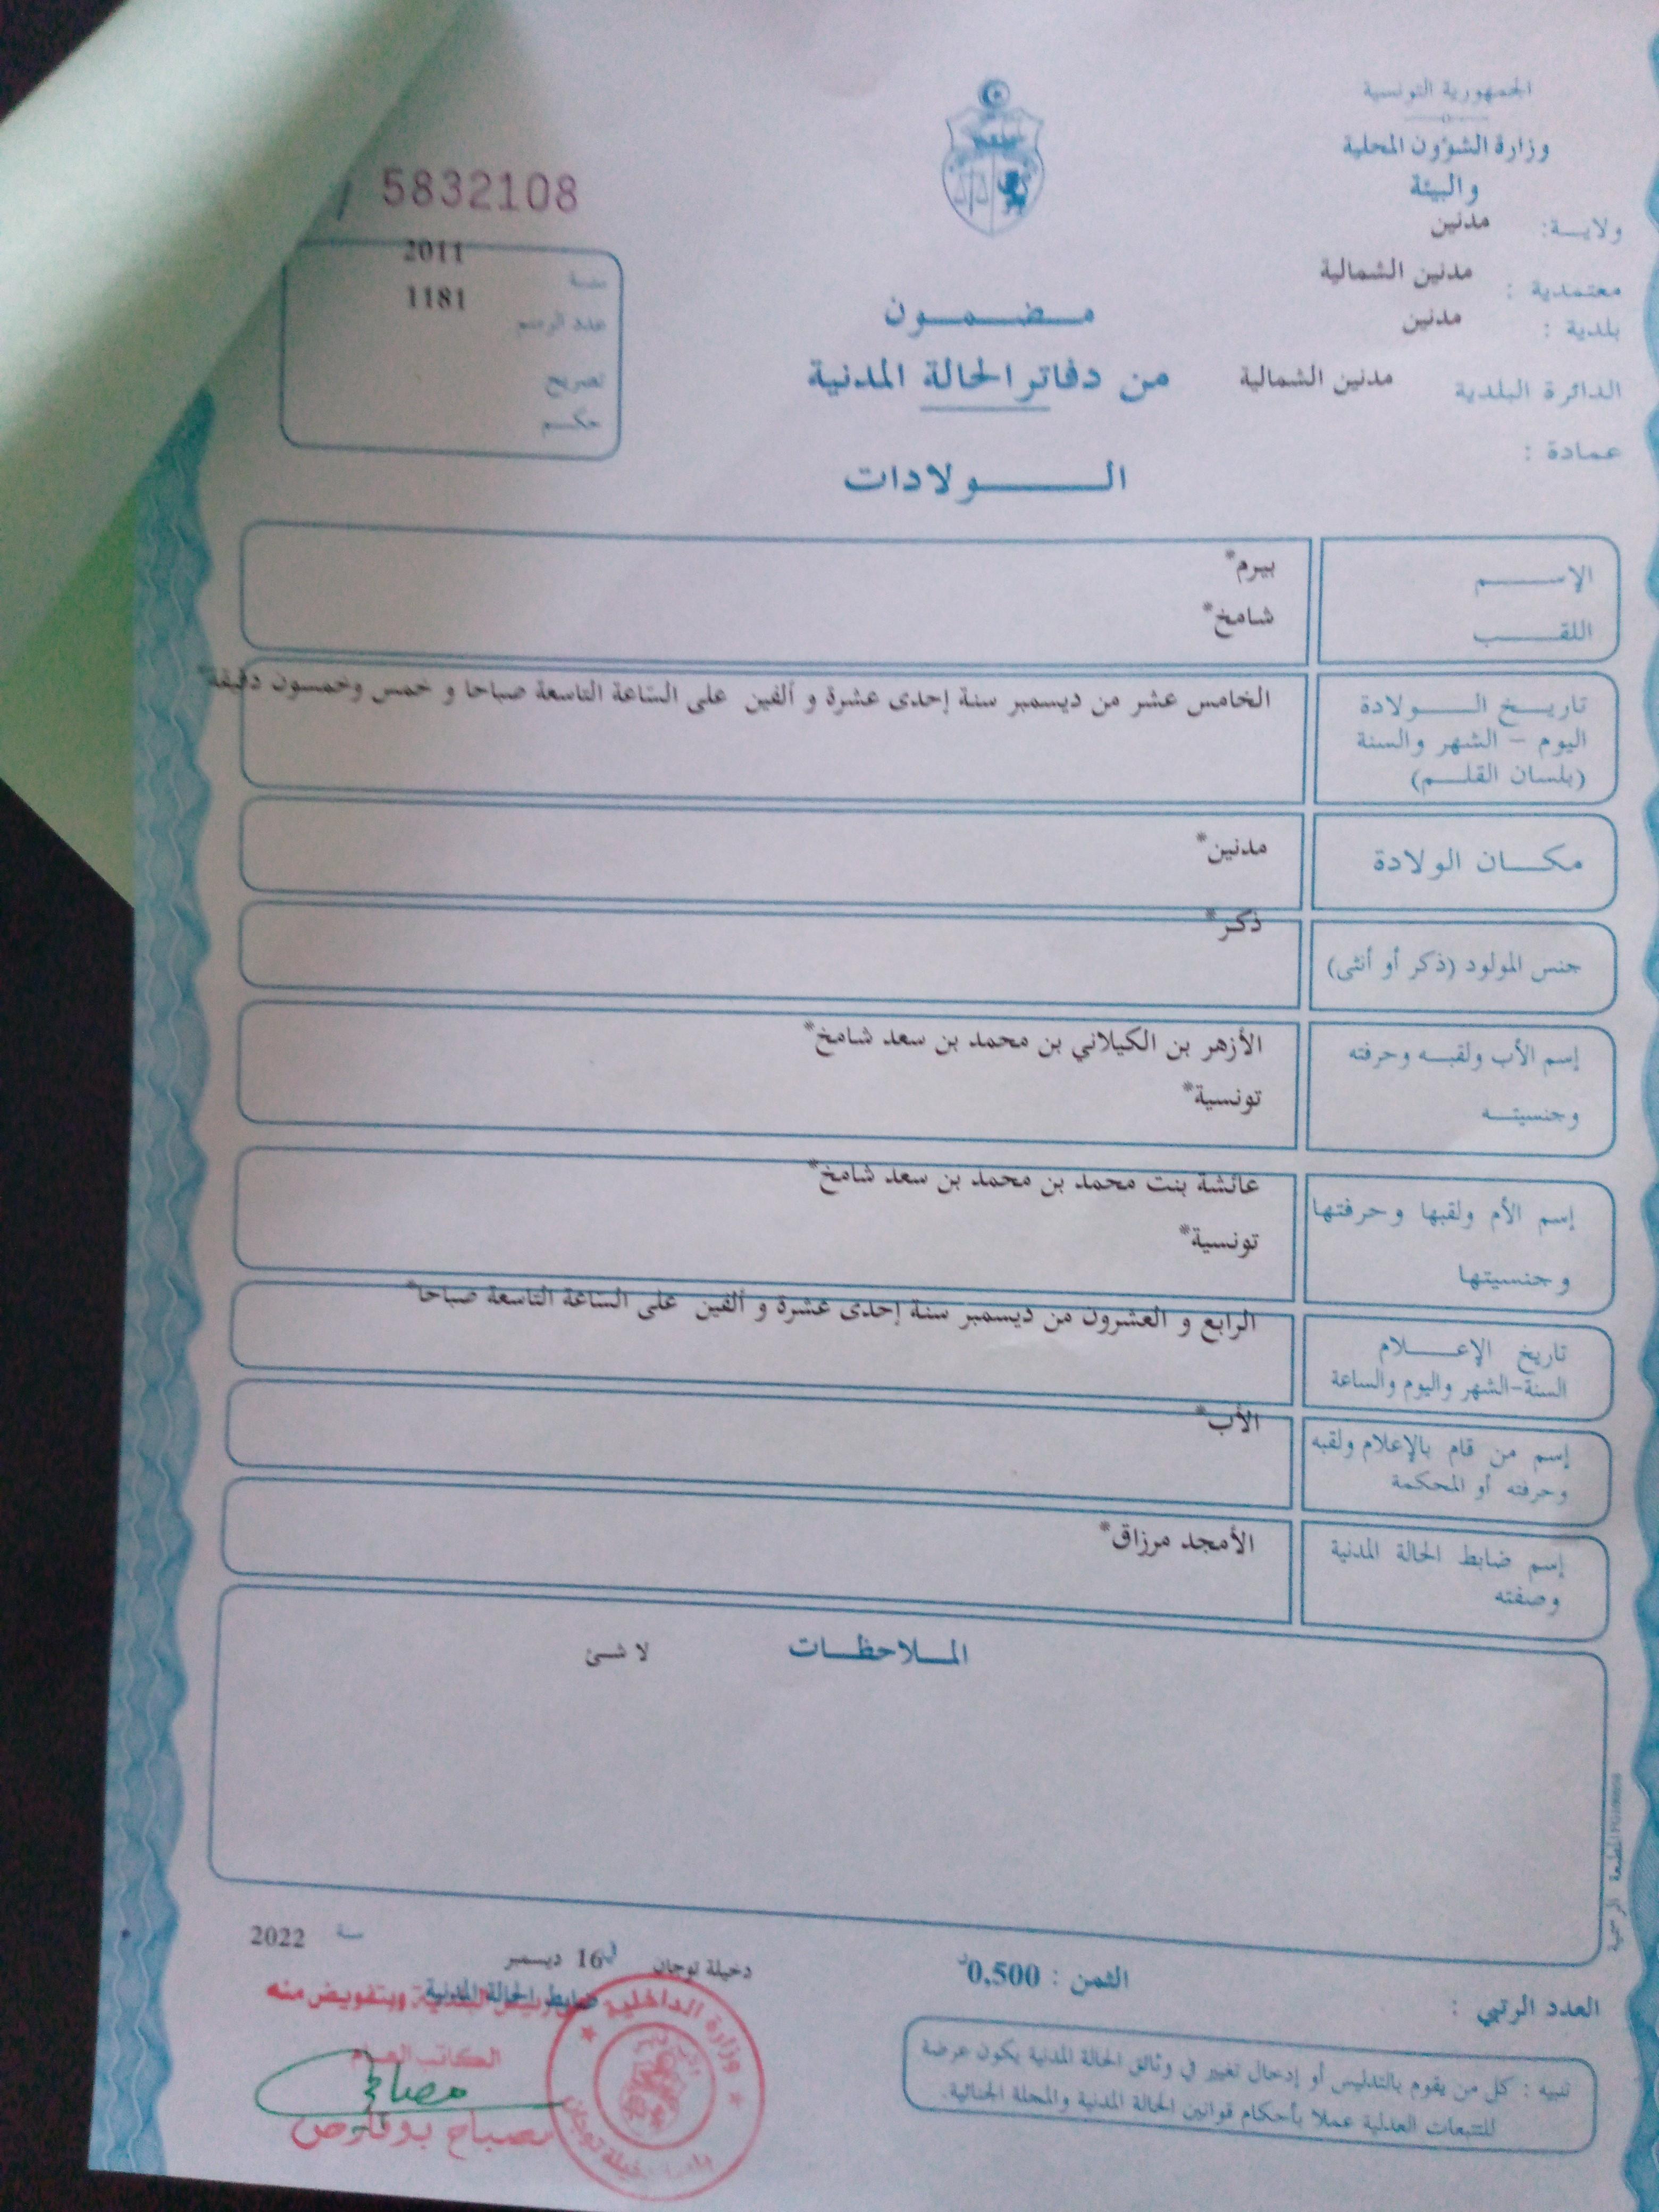 الجمهورية التونسية
وزارة الشؤون المحلية
والبيئة
ولايـــة: مدنين
معتمدية : مدنين الشمالية
بلدية : مدنين
الدائرة البلدية مدنين الشمالية
عمادة :
5832108
سنة 2011
عدد الرسم 1181
تصريح
حكم
مضمون
من دفاتر الحالة المدنية
الولادات
الإسم بيرم*
اللقب شامخ*
تاريخ الولادة
اليوم - الشهر والسنة
(بلسان القلم)
الخامس عشر من ديسمبر سنة إحدى عشرة و ألفين على الساعة التاسعة صباحا و خمس وخمسون دقيقة*
مكان الولادة مدنين*
جنس المولود (ذكر أو أنثى) ذكر*
إسم الأب ولقبه وحرفته الأزهر بن الكيلاني بن محمد بن سعد شامخ*
وجنسيته تونسية*
إسم الأم ولقبها وحرفتها عائشة بنت محمد بن محمد بن سعد شامخ*
وجنسيتها تونسية*
تاريخ الإعلام الرابع و العشرون من ديسمبر سنة إحدى عشرة و ألفين على الساعة التاسعة صباحا*
السنة-الشهر واليوم والساعة
إسم من قام بالإعلام ولقبه الأب*
وحرفته أو المحكمة
إسم ضابط الحالة المدنية الأمجد مرزاق*
وصفته
الملاحظات لا شئ
المطبعة الرسمية
دخيلة توجان في 16 ديسمبر سنة 2022
ضابط الحالة المدنية
وبتفويض منه
الكاتب العام
مصباح بوقارص
وزارة الداخلية
الثمن : 0,500د
العدد الرتبي :
تنبيه : كل من يقوم بالتدليس أو إدخال تغيير في وثائق الحالة المدنية يكون عرضة
للتتبعات العدلية عملا بأحكام قوانين الحالة المدنية والمجلة الجنائية.